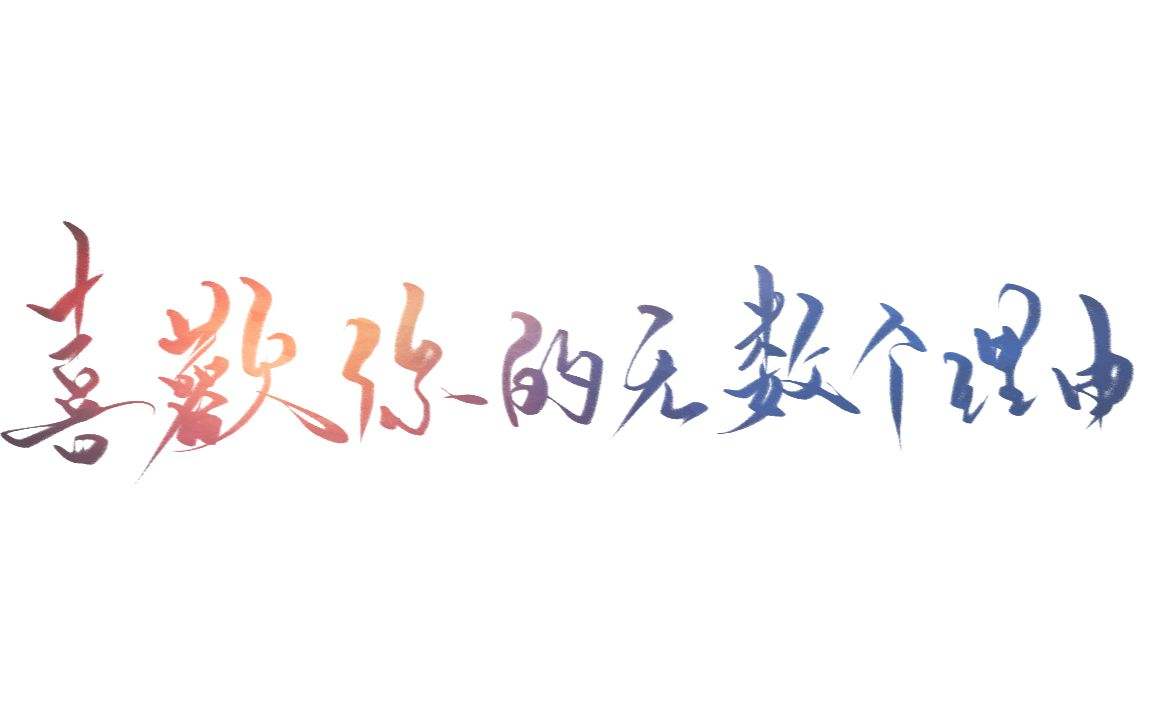 喜歡你的无数个理由